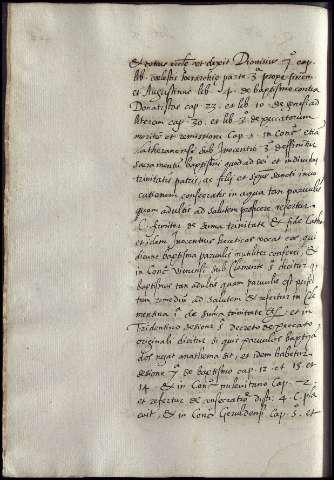 Et totus ecclesie ut dixit Dionisius 7 cap.
lib. coelestis hierarchie parte 3 prope finem
et Augustinus lib. 4 de baptismo contra
Donatistas cap. 23. et lib. 10 de genesi ad
literam cap. 30. et lib. de peccatorum
meritis et remissione Cap. in Conc. etia
Lateranensi sub Inocentio 3 deffinitur
sacramentu baptismi quod ad dei et individue
trinitatis patris, et filij et spūs sancti invo
cationem consecratis in aqua tam parvulis
quam adultis ad salutem proficere refertur
C. firmiter de suma trinitate & fide Catho
et idem Inocentius hereticos vocat eos qui
dicunt baptisma parvulis inutiliter conferri, &
in Conc. Viennensi sub Clemente 5 dicitur q
baptismus tam adultis quam parvulis est perfec
tum remediu ad salutem & refertur in Cle
mentina i de suma trinitate et in
Tridentino sesione 5 decreto de peccato
originali dicitur si quis parvulos baptiza
dos negat anathema sit, et idem habetur
sesione 7 de baptismo cap. 12. et 13 et
14. & in Conc. milevitano Cap. 2.
et refertur de consecratio. dist. 4. C. pla
cuit, & in Conc. Gerundensi Cap. 5. et